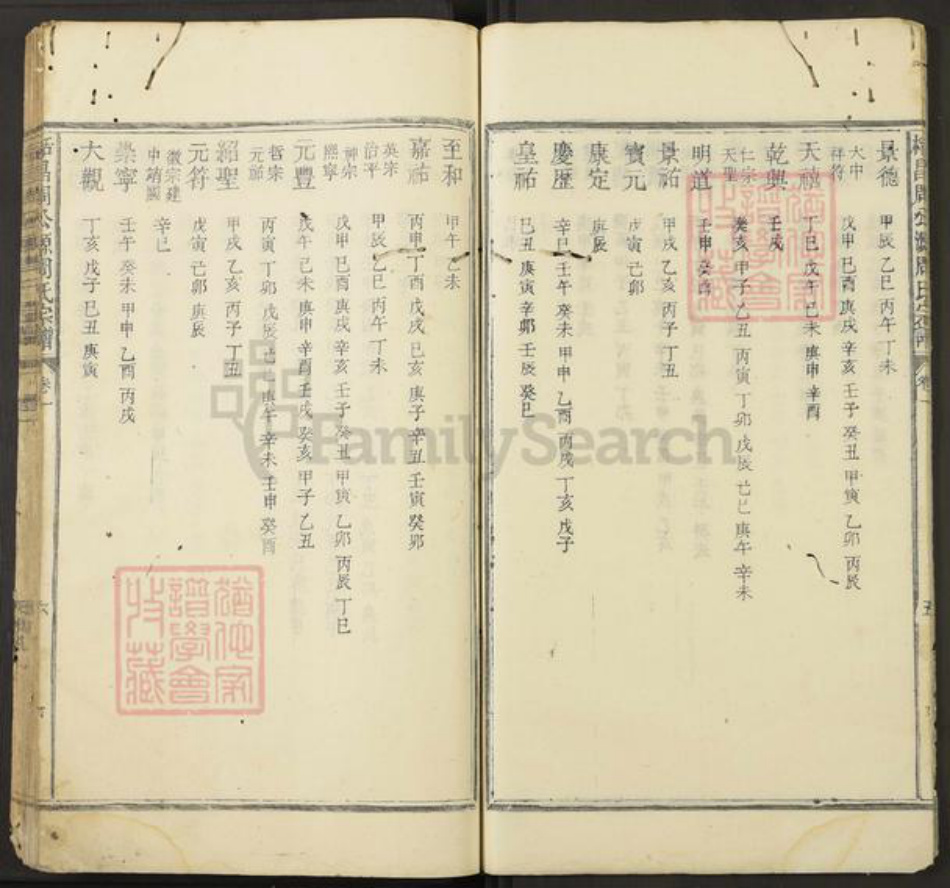 景德 甲辰 乙巳 丙午 丁未
大中祥符 戊申 己酉 庚戌 辛亥 壬子 癸丑 甲寅 乙卯 丙辰
天禧 丁巳 戊午 己未 庚申 辛酉
乾興 壬戌
仁宗天聖 癸亥 甲子 乙丑 丙寅 丁卯 戊辰 己巳 庚午 辛未
明道 壬申 癸酉
景祐 甲戌 乙亥 丙子 丁丑
寳元 戊寅 己卯
康定 庚辰
慶歷 辛巳 壬午 癸未 甲申 乙酉 丙戌 丁亥 戊子
皇祐 己丑 庚寅 辛卯 壬辰 癸巳
五
至和 甲午 乙未
嘉祐 丙申 丁酉 戊戌 己亥 庚子 辛丑 壬寅 癸卯
英宗治平 甲辰 乙巳 丙午 丁未
神宗熙寧 戊申 己酉 庚戌 辛亥 壬子 癸丑 甲寅 乙卯 丙辰 丁巳
元豐 戊午 己未 庚申 辛酉 壬戌 癸亥 甲子 乙丑
哲宗元祐 丙寅 丁卯 戊辰 己巳 庚午 辛未 壬申 癸酉
紹聖 甲戌 乙亥 丙子 丁丑
元符 戊寅 己卯 庚辰
徽宗建中靖國 辛巳
崇寧 壬午 癸未 甲申 乙酉 丙戌
大觀 丁亥 戊子 己丑 庚寅
周公源周氏宗譜 卷一
六
FamilySearch